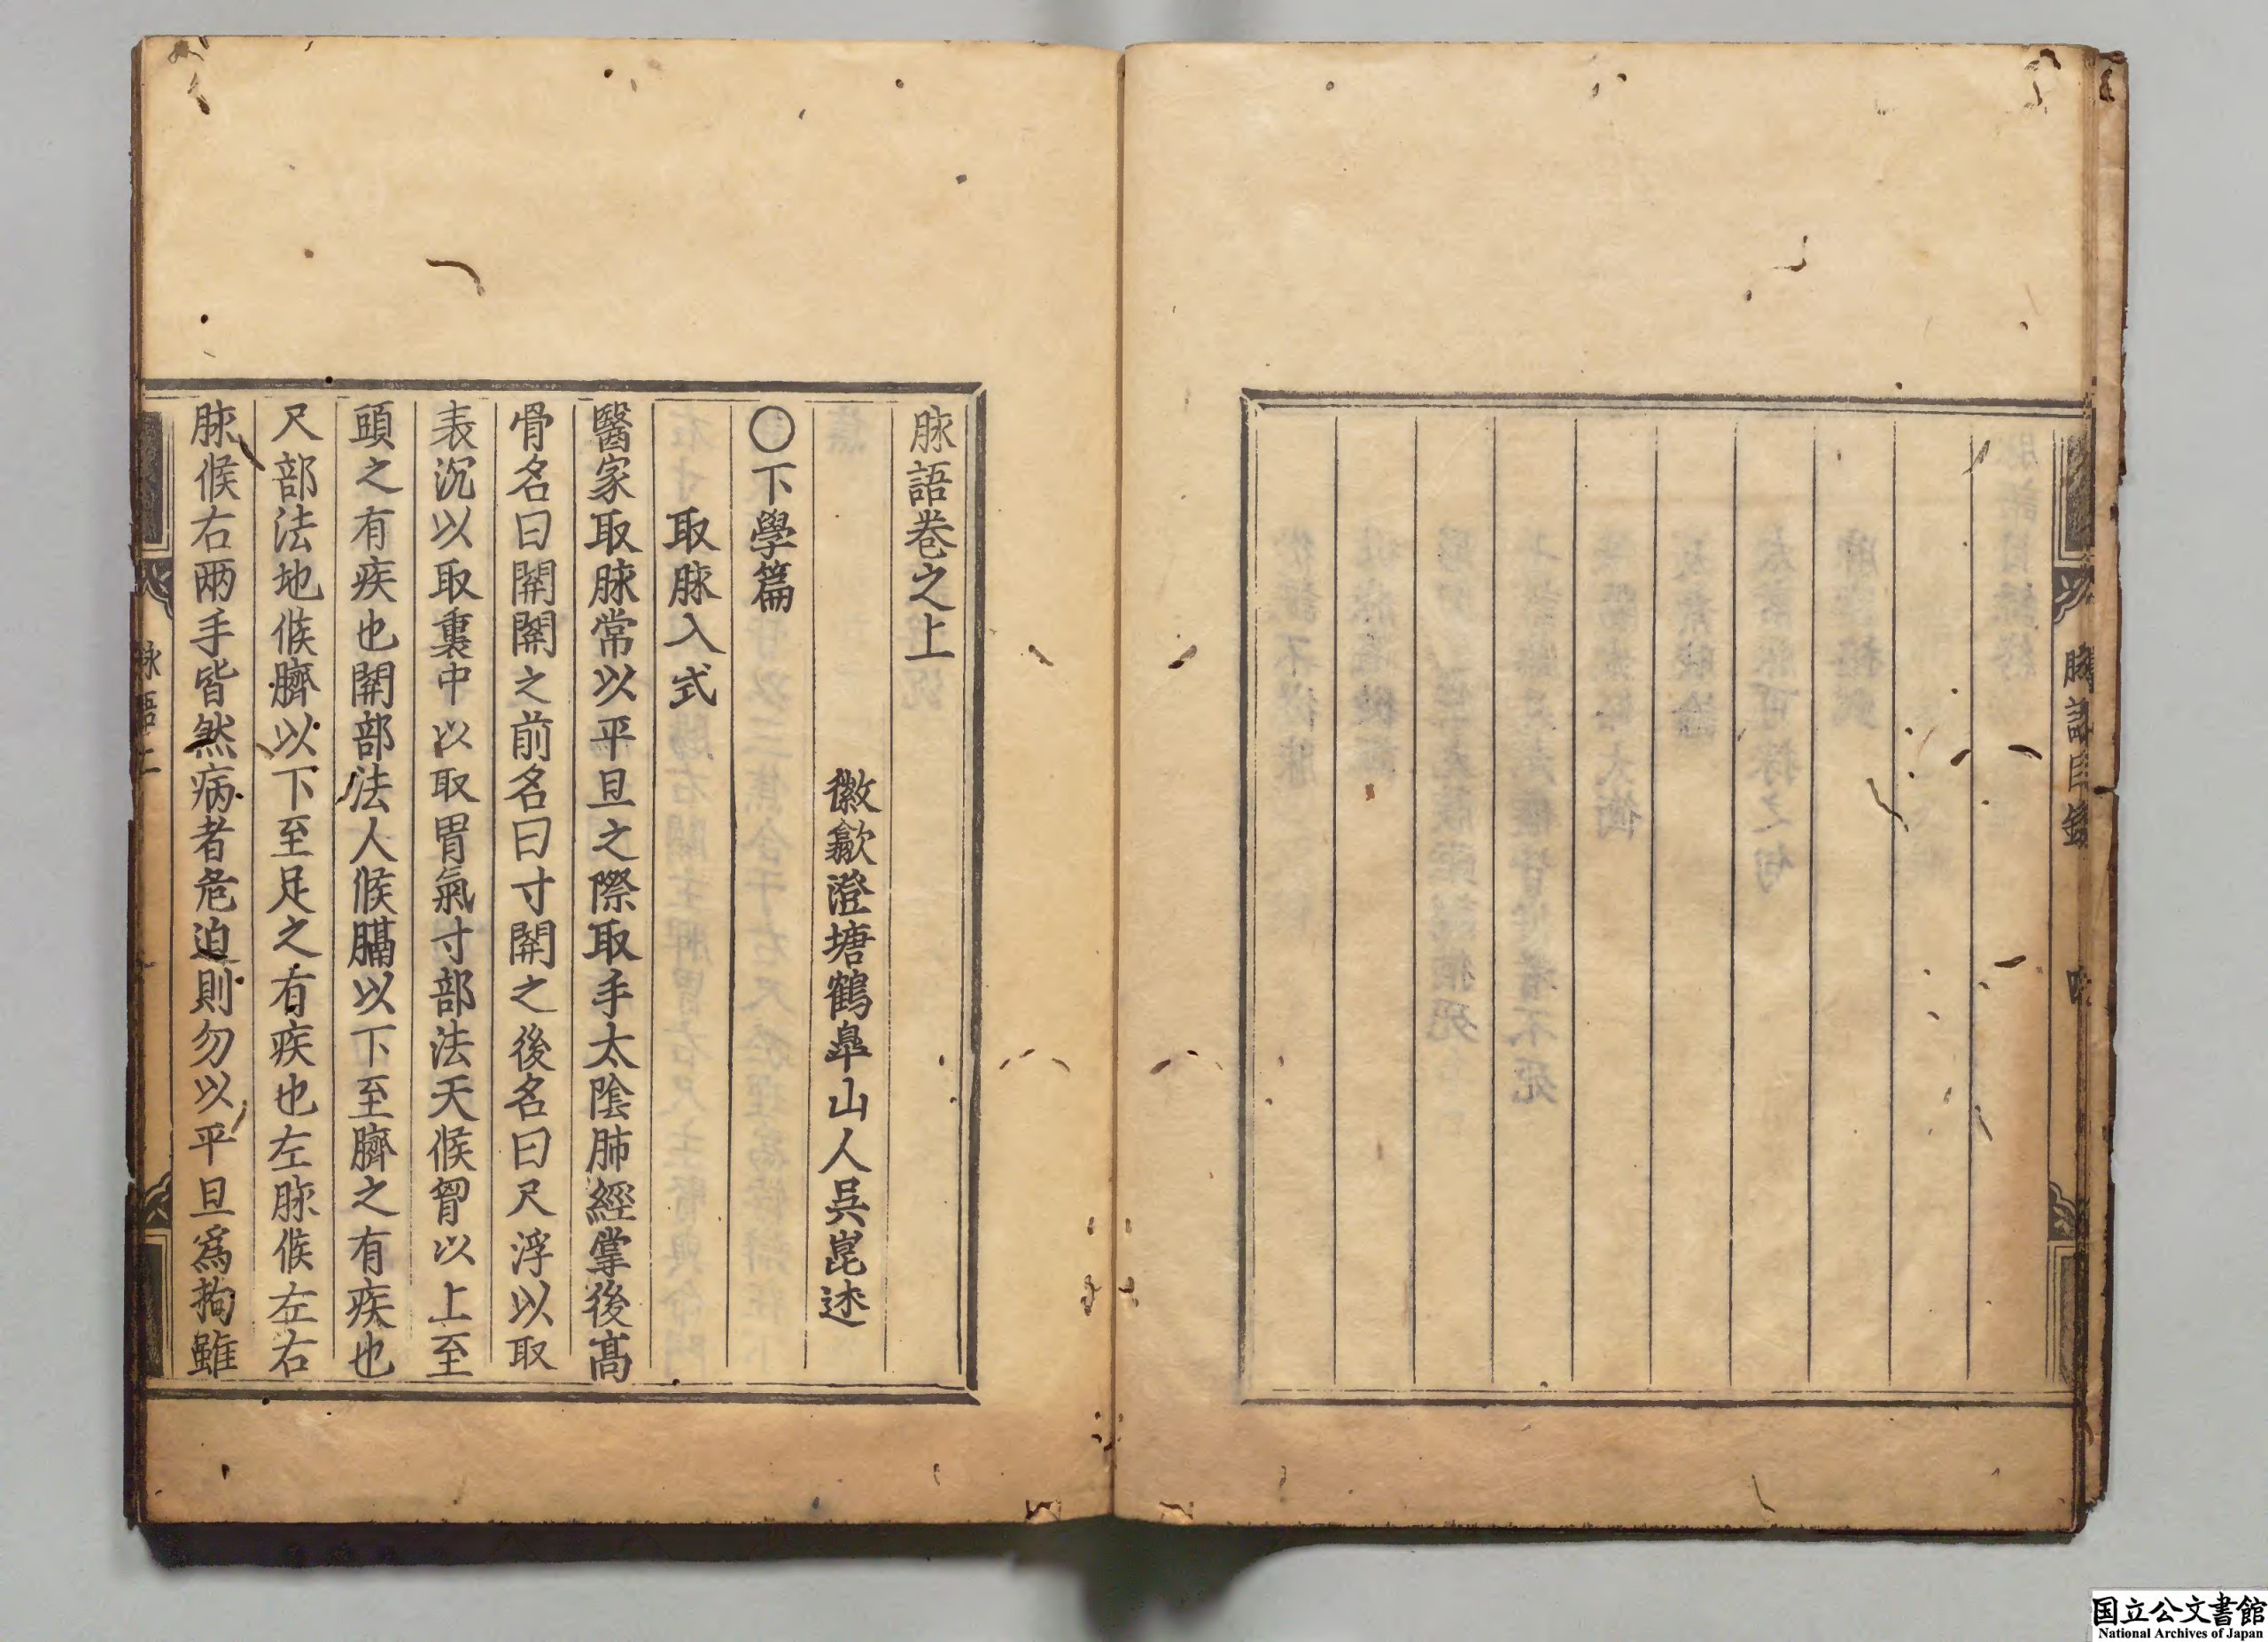 脉語目錄
脉語卷之上
徽歙澄塘鶴臯山人吳崑述
○下學篇
取脉入式
醫家取脉常以平旦之際取手太陰肺經掌後高
骨名曰關關之前名曰寸關之後名曰尺浮以取
表沉以取裏中以取胃氣寸部法天候胷以上至
頭之有疾也關部法人候膈以下至臍之有疾也
尺部法地候臍以下至足之有疾也左脉候左右
脉候右兩手皆然病者危迫則勿以平旦爲拘雖
脉語上
国立公文書館
National Archives of Japan